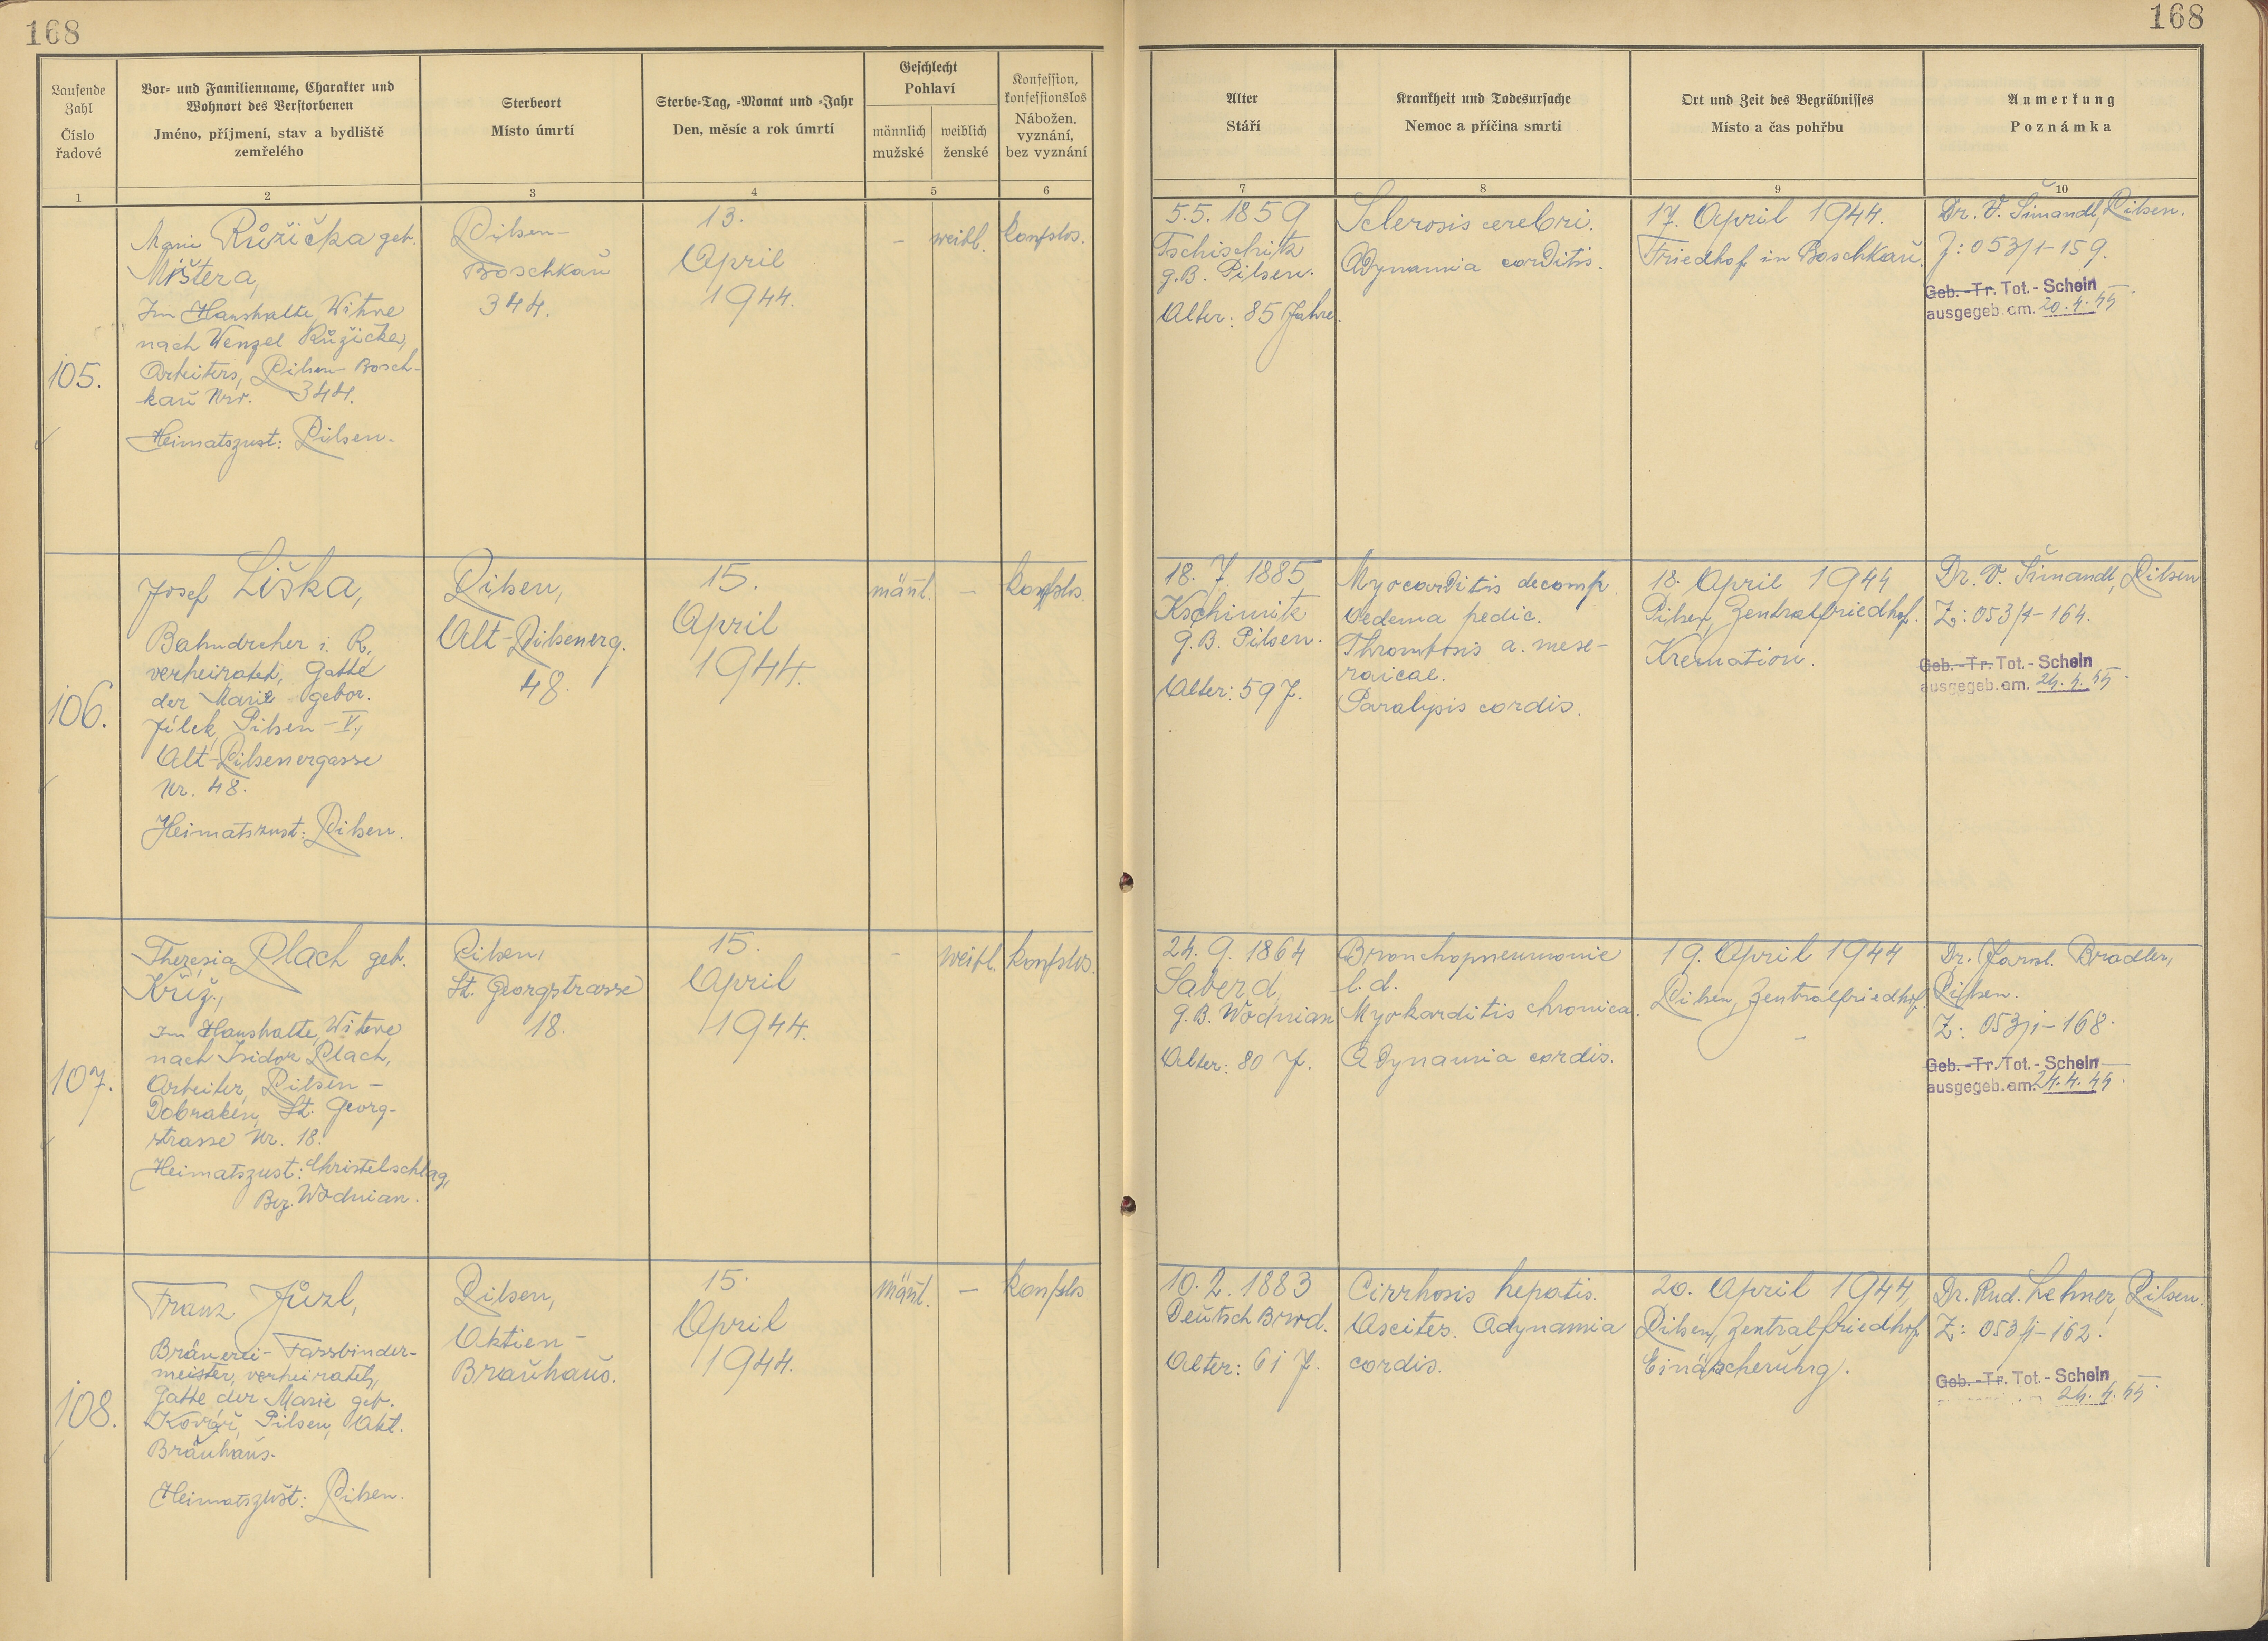 168
168
Laufende Zahl
Číslo řadové
Vor- und Familienname, Charakter und
Wohnort des Verstorbenen
Jméno, příjmení, stav a bydliště
zemřelého
Sterbeort
Místo úmrtí
Sterbe-Tag, -Monat und -Jahr
Den, měsíc a rok úmrtí
Geschlecht
Pohlaví
männlich
mužské
weiblich
ženské
Konfession,
konfessionslos
Nábožen.
vyznání,
bez vyznání
Alter
Stáří
Krankheit und Todesursache
Nemoc a příčina smrti
Ort und Zeit des Begräbnisses
Místo a čas pohřbu
Anmerkung
Poznámka
1 2 3 4 5 6 7 8 9 10
105.
Marie Růžička geb.
Mištera,
Im Haushalte, Witwe
nach Wenzel Růžička,
Arbeiters, Pilsen-Bosch-
kau Nr. 344.
Heimatszust: Pilsen.
Pilsen-
Boschkau
344.
13.
April
1944.
-
weibl.
konfslos.
5.5. 1859
Tschischitz
g.B. Pilsen.
Alter: 85 Jahre.
Sclerosis cerebri.
Adynamia corditis.
17. April 1944.
Friedhof in Boschkau.
Dr. V. Šimandl, Pilsen.
Z: 053/1-159.
Geb.-Tr. Tot.-Schein
ausgegeb. am. 20.4.44
106.
Josef Liška,
Bahndreher i. R.
verheiratet, Gatte
der Marie gebor.
Jílek, Pilsen-V.,
Alt-Pilsenergasse
Nr. 48.
Heimatszust: Pilsen.
Pilsen,
Alt-Pilsenerg.
48.
15.
April
1944.
männl.
-
konfslos.
18. 7. 1885
Kschimitz
g.B. Pilsen.
Alter: 59 J.
Myocarditis decomp.
Oedema pedic.
Thrombosis a. mese-
raicae.
Paralysis cordis.
18. April 1944
Pilsen, Zentralfriedhof.
Kremation.
Dr. V. Šimandl, Pilsen
Z: 053/1-164.
Geb.-Tr. Tot.-Schein
ausgegeb. am. 24.4.44
107.
Theresia Plach geb.
Kříž,
Im Haushalte, Witwe
nach Isidor Plach,
Arbeiter, Pilsen-
Dobraken, St. Georg-
strasse Nr. 18.
Heimatszust: Christelschlag,
Bez. Wodnian.
Pilsen,
St. Georgstrasse
18.
15.
April
1944.
-
weibl.
konfslos.
24. 9. 1864
Saberd,
g.B. Wodnian
Alter: 80 J.
Bronchopneumonie
l.d.
Myokarditis chronica.
Adynamia cordis.
19. April 1944
Pilsen, Zentralfriedhof.
-
Dr. Jarosl. Bradler,
Pilsen.
Z: 053/1-168.
Geb.-Tr. Tot.-Schein
ausgegeb. am. 24.4.44
108.
Franz Jůzl,
Bräuerei-Fassbinder-
meister, verheiratet,
Gatte der Marie geb.
Kovář, Pilsen, Akt.
Bräuhaus.
Heimatszust: Pilsen.
Pilsen,
Aktien-
Brauhaus.
15.
April
1944.
männl.
-
konfslos
10. 2. 1883
Deutsch Brod.
Alter: 61 J.
Cirrhosis hepatis.
Ascites. Adynamia
cordis.
20. April 1944,
Pilsen, Zentralfriedhof
Einäscherung.
Dr. Rud. Lehner, Pilsen.
Z: 053/1-162.
Geb.-Tr. Tot.-Schein
24.4.44